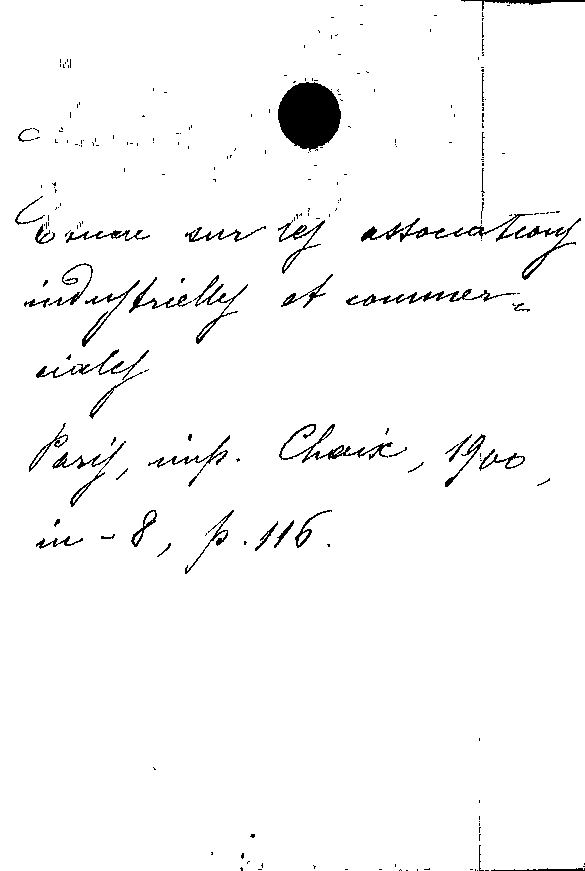 sur les associations
industrielles et commer-
ciales
Paris, imp. Chaix, 1900,
in-8, p. 116.